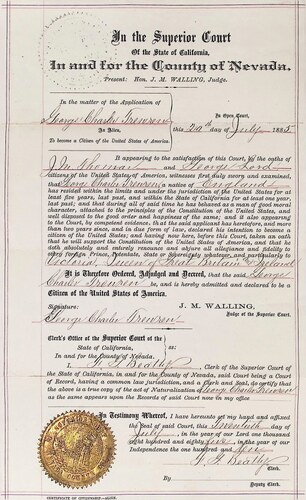 In the Superior Court
Of the State of California,
In and for the County of Nevada.
Present: Hon. J. M. WALLING, Judge.
In the matter of the Application of
George Charles Trewren
An Alien,
To become a Citizen of the United States of America.
In Open Court,
this 20th day of July 1885
It appearing to the satisfaction of this Court, by the oaths of
J. M. Thomas and George Lord
citizens of the United States of America, witnesses first duly sworn and examined,
that George Charles Trewren a native of England
has resided within the limits and under the jurisdiction of the United States for at
least five years, last past, and within the State of California for at least one year,
last past; and that during all of said time he has behaved as a man of good moral
character, attached to the principles of the Constitution of the United States, and
well disposed to the good order and happiness of the same; and it also appearing
to the Court, by competent evidence, that the said applicant has heretofore, and more
than two years since, and in due form of law, declared his intention to become a
citizen of the United States; and having now here, before this Court, taken an oath
that he will support the Constitution of the United States of America, and that he
doth absolutely and entirely renounce and abjure all allegiance and fidelity to
every foreign Prince, Potentate, State or Sovereignty whatever, and particularly to
Victoria, Queen of Great Britain & Ireland
It is Therefore Ordered, Adjudged and Decreed, that the said George
Charles Trewren be, and is hereby admitted and declared to be a
Citizen of the United States of America.
J. M. WALLING,
Judge of the Superior Court.
Signature:
George Charles Trewren
Clerk's Office of the Superior Court of the
State of California,
In and for the County of Nevada.
I, F. G. Beatty, Clerk of the Superior Court of
the State of California, in and for the County of Nevada, said Court being a Court of
Record, having a common law jurisdiction, and a Clerk and Seal, do certify that
the above is a true copy of the Act of Naturalization of George Charles Trewren
as the same appears upon the Records of said Court now in my office
In Testimony Whereof, I have hereunto set my hand and affixed
the Seal of said Court, this Twentieth day of
July, in the year of our Lord one thousand
eight hundred and eighty five, in the year of our
Independence the one hundred and tenth
F. G. Beatty
Clerk.
By
Deputy Clerk.
CERTIFICATE OF CITIZENSHIP—ALIEN.